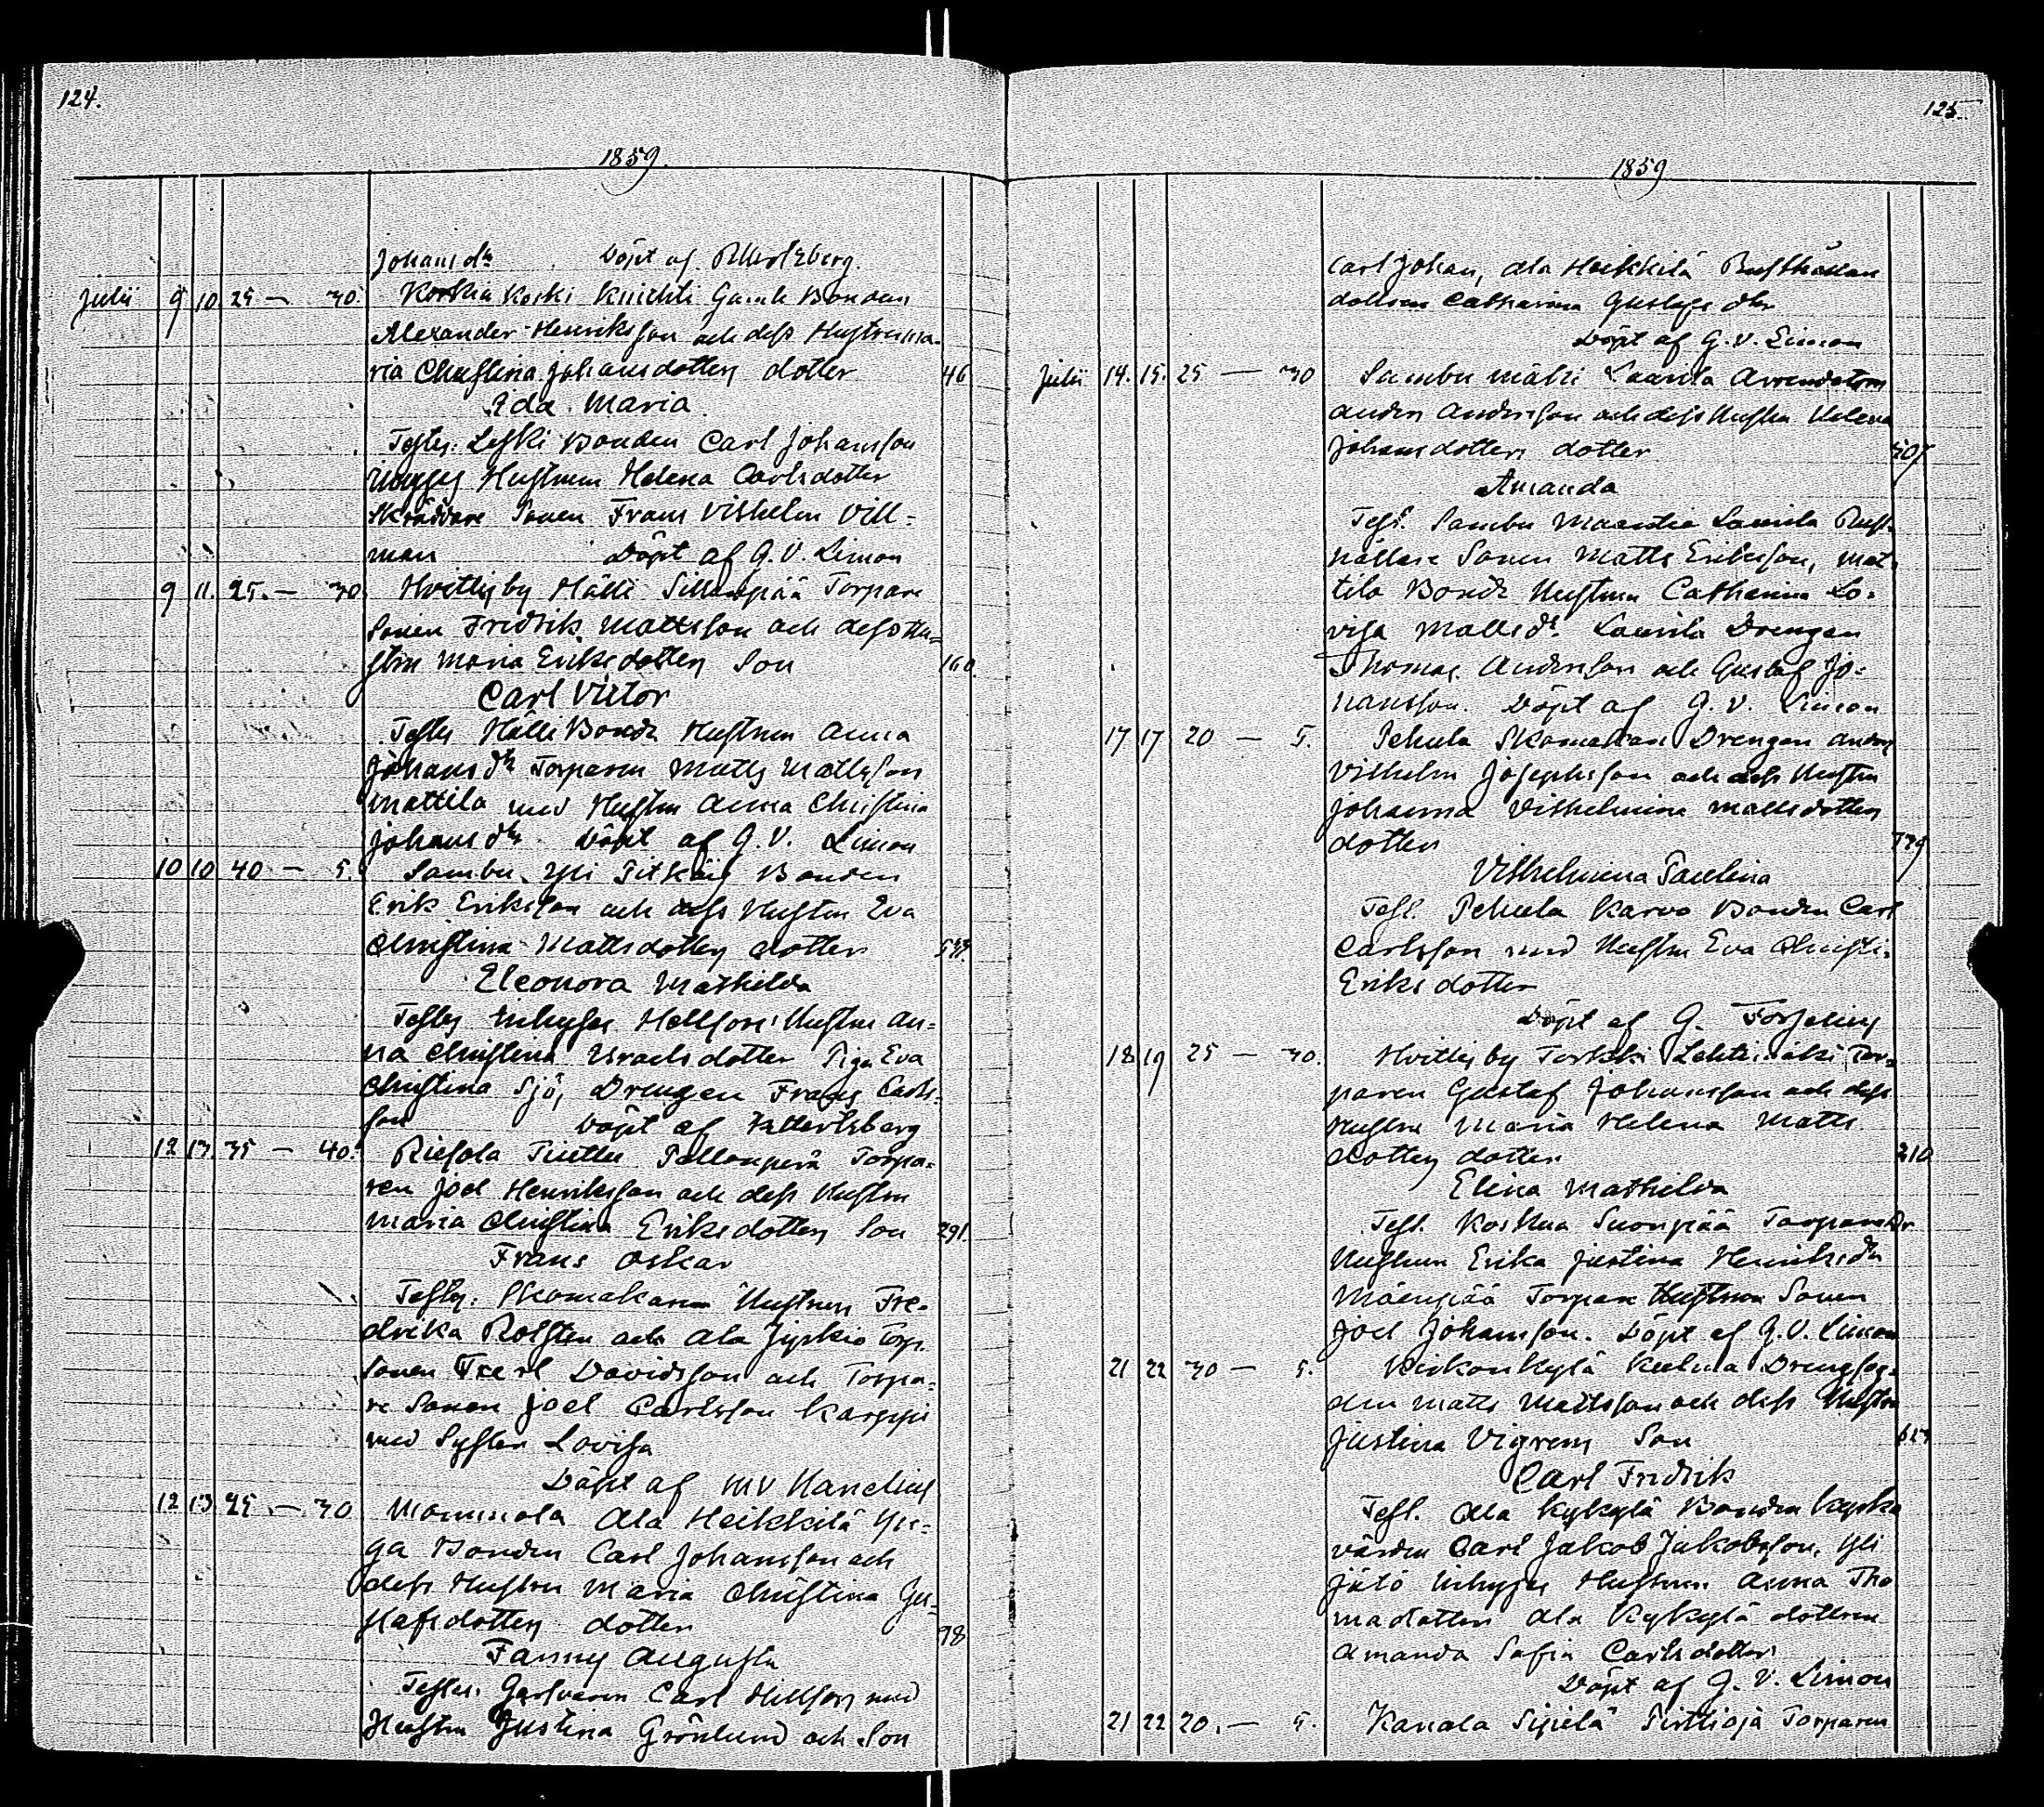 124.
1859.
Johans dr Döpt af
Julii 9 10 25 — 30. Koskis Knichti Gamle Bonden
Alexander Henriksson och dess Hustru Ma-
ria Christina Johansdotters dotter 46
Ida Maria
Testes: Leski Bonden Carl Johansson
Hustrun Helena Carlsdotter
Skräddare Sonen Frans Vilhelm Vill-
man Döpt af G. V. Limon
9 11. 25. — 30 Hvittisby Hälli Sillanpää Torpare
Sonen Fredrik Mattsson och dess Hu-
stru Maria Eriksdotters Son 160.
Carl Victor
Testes Hälli Bonde Hustrun Anna
Johans dr Torparen Matts Mattsson
Mattila med Hustru Anna Christina
Johans dr Döpt af G. V. Limon
10 10 40 — 5. Sambu Yli Bonden
Erik Eriksson och dess Hustru Eva
Christina Mattsdotters dotter
Eleonora Mathilda
Testes Inhyses Hellfors Hustru An-
na Christina Israelsdotter Piga Eva
Christina Sjö, Drengen Frans Carls-
son Döpt af
12 13. 35 — 40. Riesola Torpa-
ren Joel Henriksson och dess Hustru
Maria Christina Eriksdotters Son 291.
Frans Oskar
Testes: Skomakaren Hustrun Fre-
drika Rolsten och Ala Torp.
Sonen Davidsson och Torpa-
re Sonen Joel Carlsson Karppi
med Syster Lovisa
Döpt af MV Hanelius
12 13 25. — 30 Mommola Ala Heikkilä Yn-
ga Bonden Carl Johansson och
dess Hustru Maria Christina Gu-
stafsdotters dotter 98
Fanny Augusta
Testes: Garfveren Carl Hellfors med
Hustru Justina Grönlund och Son
125.
1859
Carl Johan, Ala Heikkilä Rusthållan
dottren Catharina Gustafs dtr
Döpt af G. V. Limon
Julii 14. 15. 25 — 30 Sambu Mäki Laurila Arrendatorn
Anders Andersson och dess Hustru Helena
Johansdotters dotter 507
Amanda
Test. Sambu Laurila Rust-
hållare Sonen Matts Eriksson, Mat-
tila Bonde Hustrun Catharina Lo-
visa Matts dr. Laurila Drengen
Thomas Andersson och Gustaf Jo-
hansson. Döpt af G. V. Limon
17 17 20 — 5. Pehula Skomakare Drengen Anders
Vilhelm Josephsson och dess Hustru
Johanna Vilhelmina Mattsdotters
dotter
Vilhelmina Paulina
Test. Pehula Karvo Bonden Carl
Carlsson med Hustru Eva Christi.
Eriksdotter
Döpt af G. Forselius
18 19 25 — 30. Hvittis by Turkki Lehtimäki Tor-
paren Gustaf Johansson och dess
Hustru Maria Helena Matts
dotters dotter 210
Elina Mathilda
Test. Koskua Suonpää Torpare
Hustrun Erika Justina Henriks dr
Mäenpää Torpare Hustrun Sonen
Joel Johansson. Döpt af G. V. Limon
21 22 30 — 5. Kirkonkylä Drengfog-
den Matts Mattsson och dess Hustru
Justina Vigrens Son
Carl Fredrik
Test. Ala Kykylä Bonden Kyrko
värden Carl Jakob Jakobsson, Yli
Inhyses Hustrun Anna Tho
madotter Ala Kykylä dottren
Amanda Sofia Carlsdotter
Döpt af G. V. Limon
21 22 20. — 5. Kanala Sipilä Pirttioja Torparen